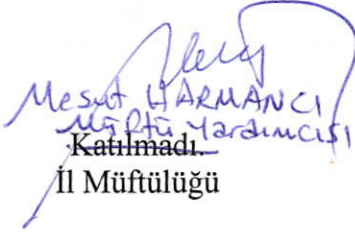 Mesut HARMANCI
Müftü Yardımcısı
Katılmadı.
İl Müftülüğü